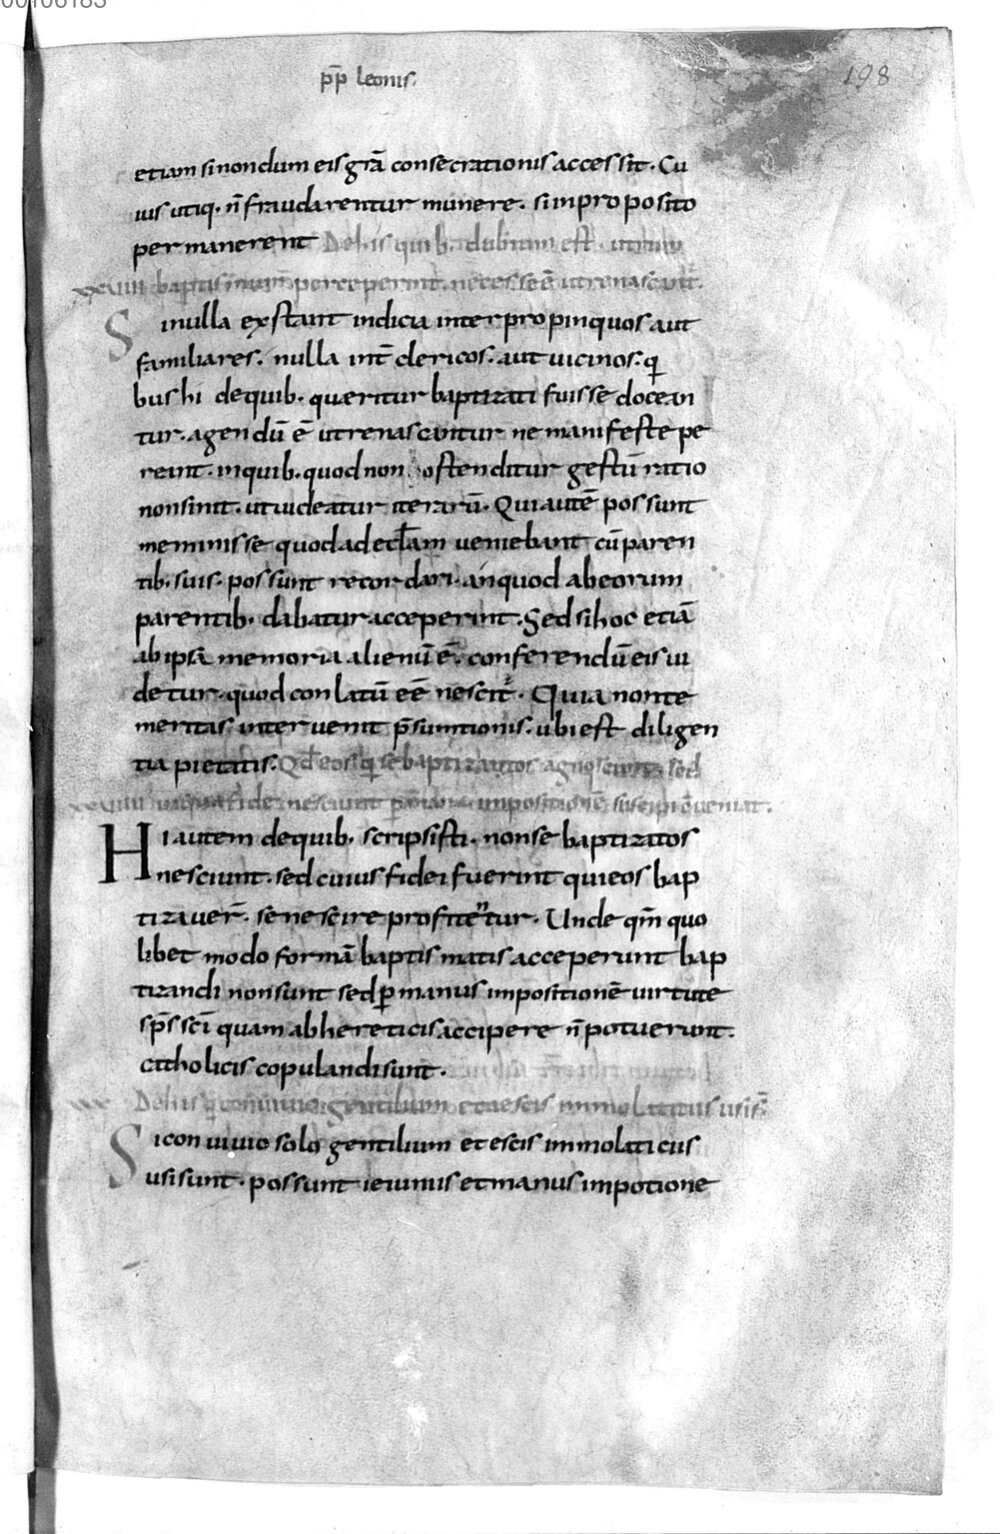 00106183
pp̄ leonis.
198
etiam si nondum eis grā consecrationis accessit. Cu
ius utiq. n̄ fraudarentur munere. si in proposito
permanerent De his quib. dubium est. utrum
xxviiii baptismum perceperint. necesse ē ut renascant̄.
Si nulla exstant indicia inter propinquos aut
familiares. nulla int̄ clericos. aut uicinos. qi
bus hi de quib. queritur baptizati fuisse docean
tur. agendū ē ut renascantur ne manifeste pe
reant. in quib. quod non ostenditur gestū ratio
non sinit. ut uideatur iterarū. Qui autē possunt
meminisse quod ad eccl̄am ueniebant cū paren
tib. suis. possunt recordari. an quod ab eorum
parentib. dabatur acceperint. Sed si hoc etiā
ab ipsā memoria alienū ē. conferendū eis ui
detur. quod conlatū eē nescit̄. Quia non te
meritas interuenit p̄sumtionis. ubi est diligen
tia pietatis. Qd̄ eos qi se baptizatos agnoscunt sed
cuius fidei nesciunt p̄ manus impositionē suscipi conueniat.
Hi autem de quib. scripsisti. non se baptizatos
nesciunt. sed cuius fidei fuerint qui eos bap
tizauer̄. se nescire profitentur. Unde qm̄ quo
libet modo formā baptismatis acceperunt bap
tizandi non sunt sed p̄ manus impositionē uirtute
sp̄s sc̄i quam ab hereticis accipere n̄ potuerunt.
catholicis copulandi sunt.
xxx De his qi conuiuio gentilium et aescis immolaticiis usi s̄
Si conuiuio solo gentilium et escis immolaticiis
usi sunt. possunt ieiuniis et manus impotione